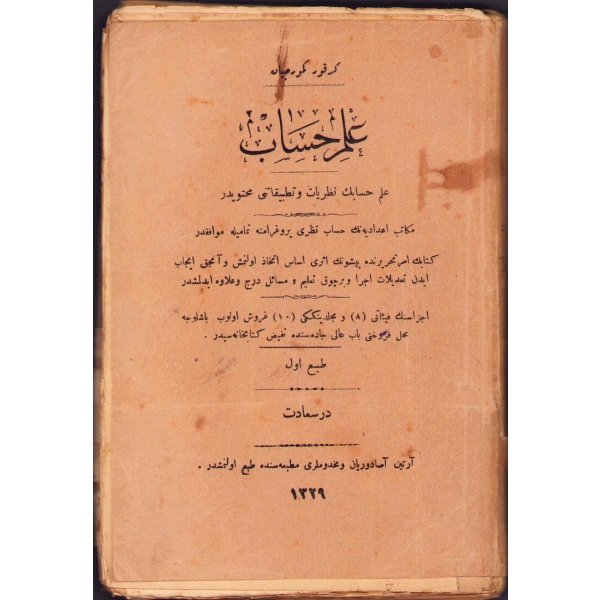 كرقور كموجيان
علم حساب
علم حسابك نظريات و تطبيقاتنى محتويدر
مكاتب اعداديه‌نك حساب نظرى پروغرامنه تماميله موافقدر
كتابك امر تحريرنده پيشونك اثرى اساس اتخاذ اولنمش و آنجق ايجاب
ايدن تعديلات اجرا و برچوق تعليم و مسائل درج و علاوه ايدلمشدر
اجزاسنك فيئاتى (٨) و مجلدينككى (١٠) غروش اولوب باشلوجه
محل فروختى باب عالى جاده‌سنده تفيض كتابخانه‌سيدر .
طبع اول
درسعادت
آرتين آصادوريان و مخدوملرى مطبعه‌سنده طبع اولنمشدر .
١٣٢٩